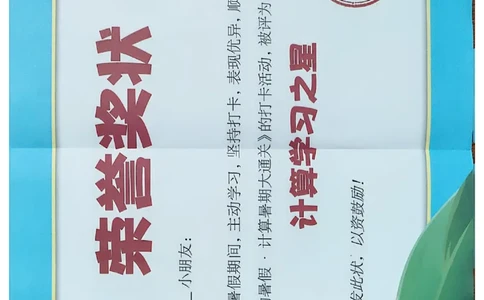 荣誉奖状
小朋友：
暑假期间，主动学习，坚持打卡，表现优异，顺
暑假·计算暑期大通关》的打卡活动，被评为
计算学习之星
发此状，以资鼓励！